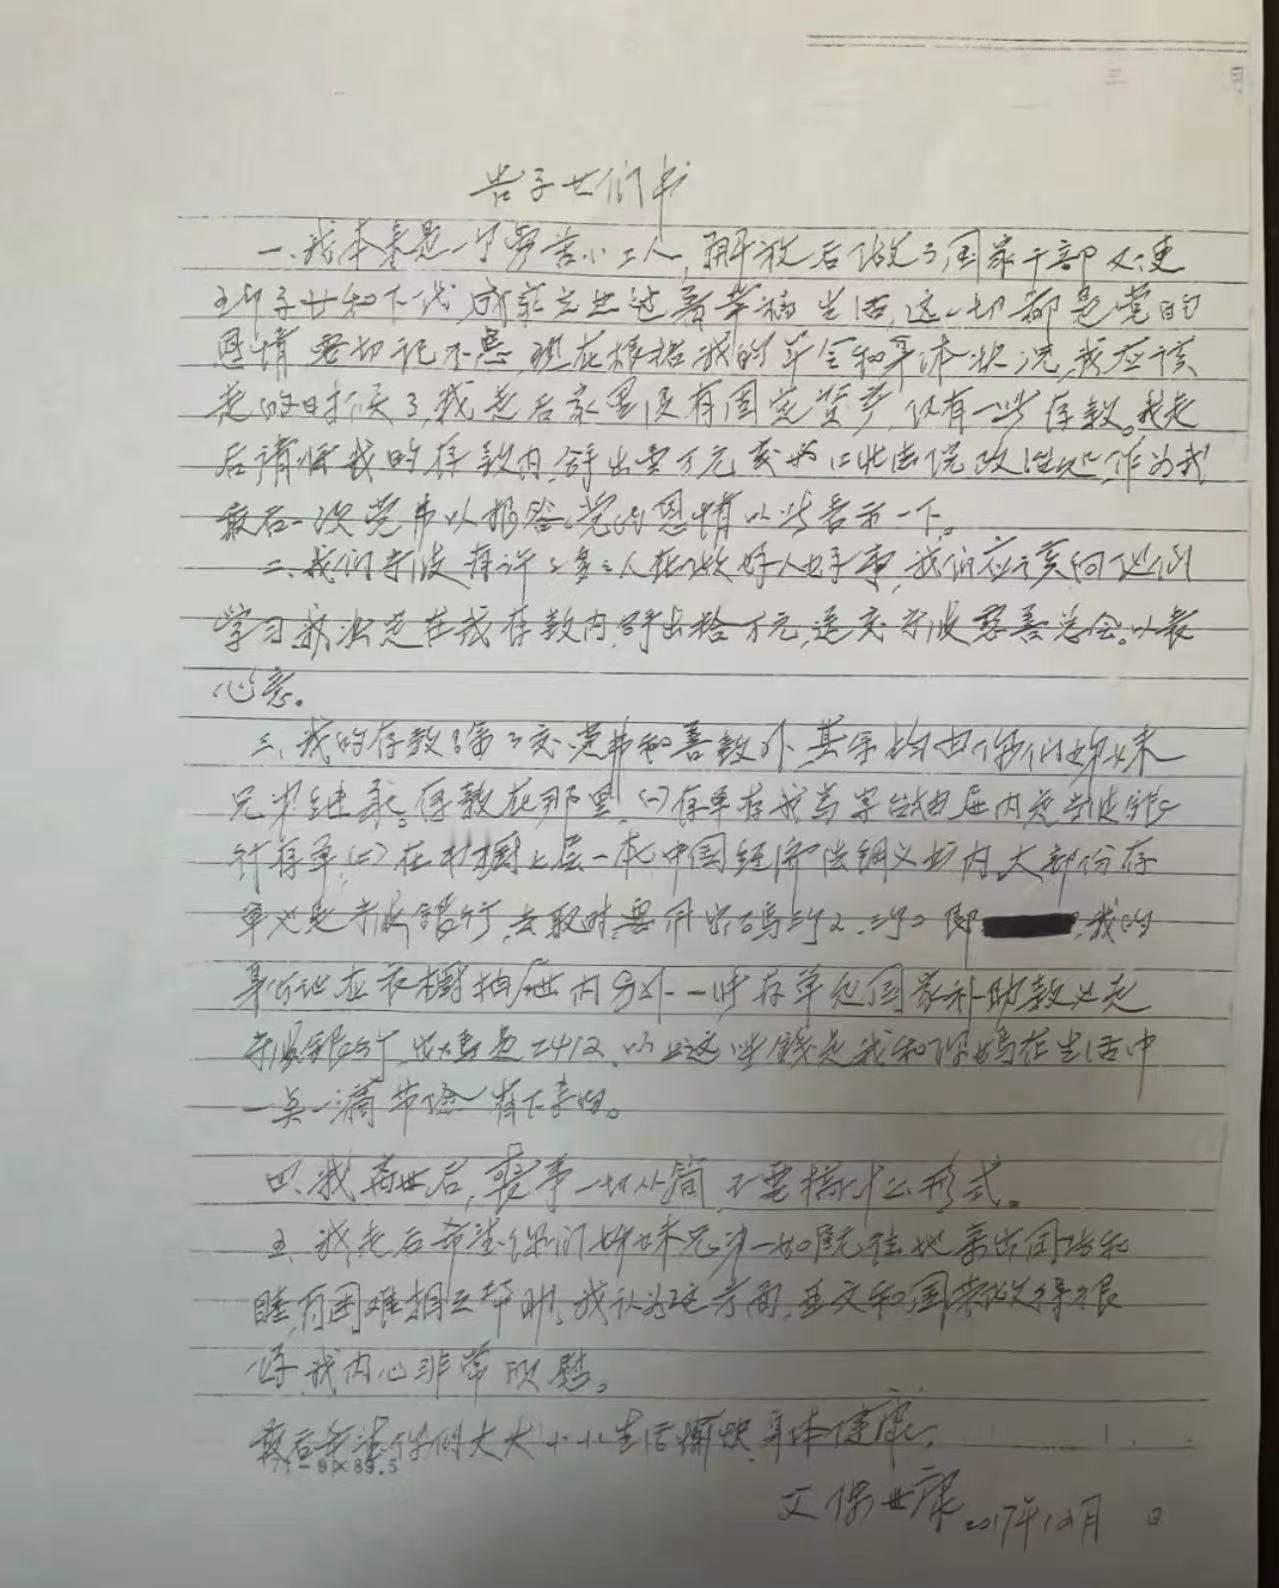 告子女们书
一、我本来是一个劳苦小工人,解放后做了国家干部又使
子女和下代成家立业过着幸福生活,这一切都是党的
恩情要切记不忘,现在根据我的年令和身体状况,我应该
走的时候了,我走后家里没有固定资产,仅有一些存款。我走
后请将我的存款内,拿出壹万元交给江北法院政治处,作为我
最后一次党费以报答党的恩情以此表示一下。
二、我们宁波有许许多多人在做好人好事,我们应该向他们
学习,我决定在我存款内,拿出拾万元,送交宁波慈善总会。以表
心意。
三、我的存款除了交党费和善款外,其余均由你们姊妹
兄弟继承。存款在那里,(一)存单在我写字台抽屉内是宁波银行
存单,(二)在书橱上层一本中国经济法纲义书内,大部份存
单义是宁波银行,去取时要用密码 即 ,我的
身份证在衣橱抽屉内另外一些存单包国家补助款义是
宁波银行,密码是2412,以上这些钱是我和你妈在生活中
一点一滴节俭省下来的。
四、我离世后,丧事一切从简,不要搞什么形式。
五、我走后希望你们姊妹兄弟一如既往地亲密团结和
睦,有困难相互帮助,我认为这方面,亚文和国荣做得很
好,我内心非常欣慰。
最后希望你们大大小小生活愉快,身体健康。
71-8×89.5
世康 2017年12月 日